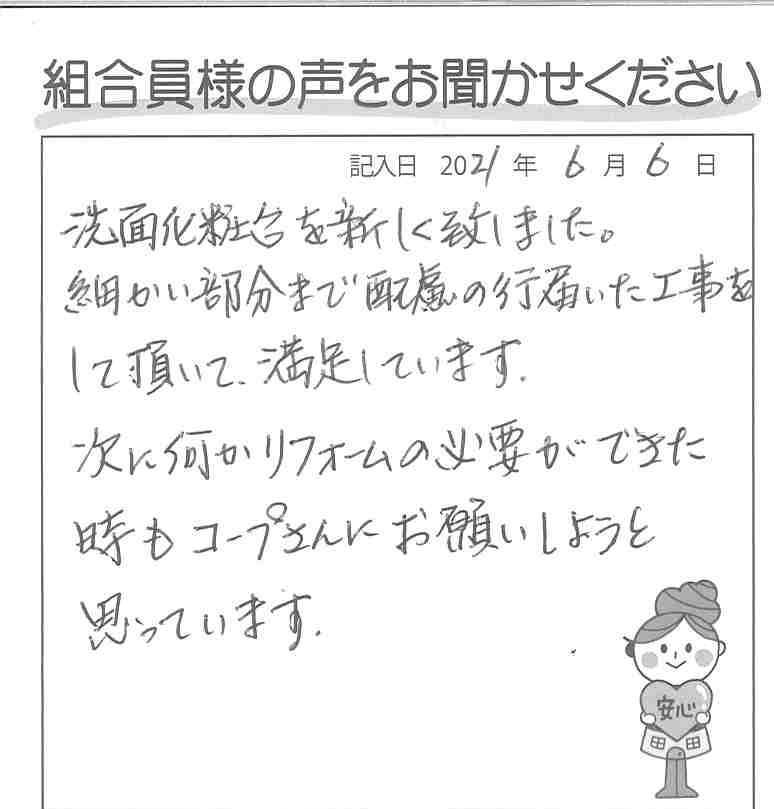 組合員様の声をお聞かせください
記入日 2021 年 6 月 6 日
洗面化粧台を新しく致しました。
細かい部分まで配慮の行届いた工事を
して頂いて、満足しています.
次に何かリフォームの必要ができた
時もコープさんにお願いしようと
思っています.
安心